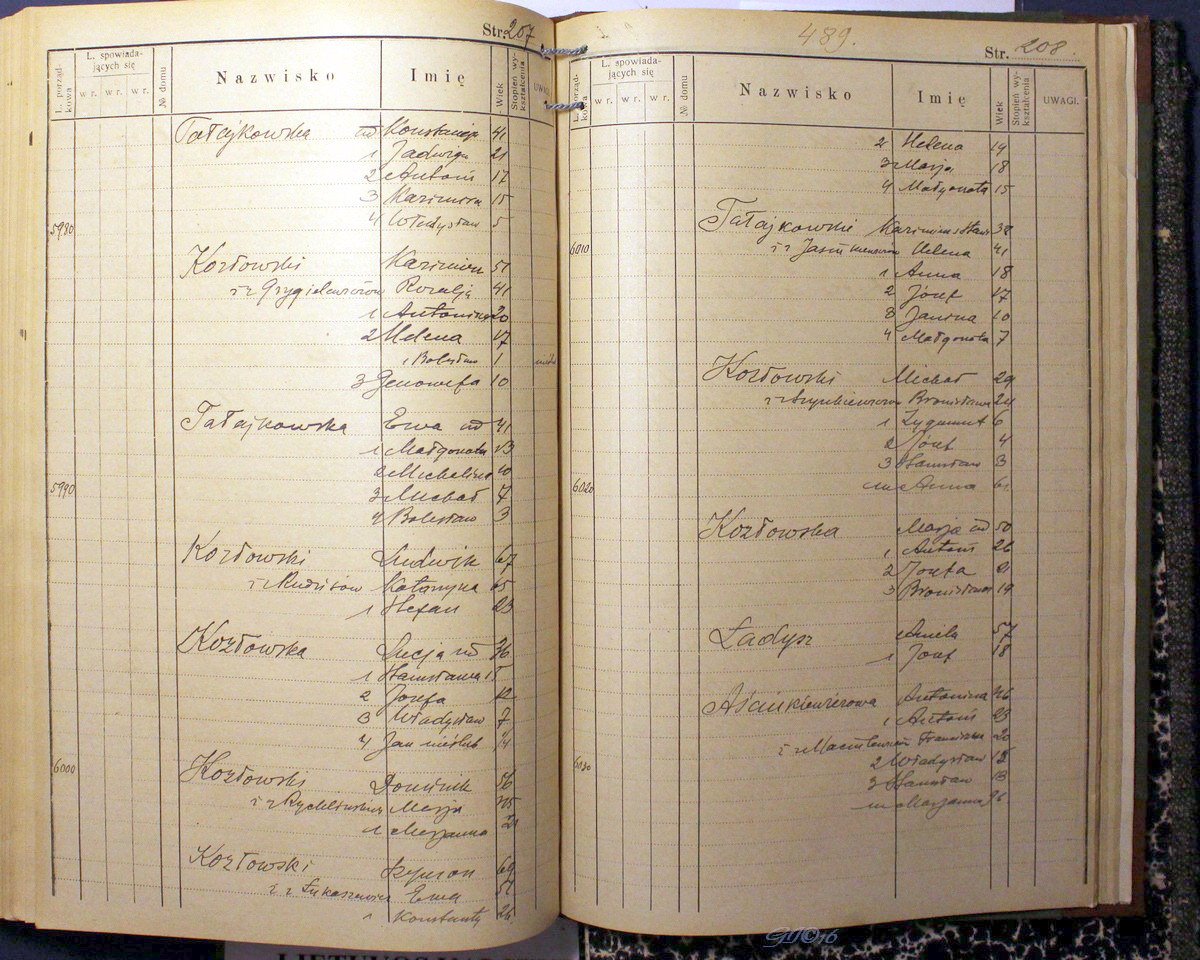 Str. 207
L. porząd-
kowa
L. spowiada-
jących się
wr. wr. wr.
№ domu
Nazwisko
Imię
Wiek
Stopień wy-
kształcenia
Tałajkowska wd Konstancja 41
1 Jadwiga 21
2 Antoni 17
3 Kazimiera 15
5980 4 Władysław 5
Kozłowski Kazimierz 51
i ż Grygielewiczów Rozalja 41
1 Antonina 20
2 Helena 17
1 Bolesław 1
3 Genowefa 10
Tałajkowska Ewa wd 41
1 Małgorzata 13
2 Michalina 10
5990 3 Michał 7
4 Bolesław 3
Kozłowski Ludwik 67
i ż Rudzisów Katarzyna 65
1 Stefan 23
Kozłowska Łucja wd 36
1 Stanisława 15
2 Józefa 12
3 Władysław 7
4 Jan nieślub 14
6000 Kozłowski Dominik 56
i ż Rychlińskich Marja 45
1 Marjanna 21
Kozłowski Szymon 69
i ż Łukaszewicz Ewa 51
1 Konstanty 26
489.
Str. 208.
L. porząd-
kowa
L. spowiada-
jących się
wr. wr. wr.
№ domu
Nazwisko
Imię
Wiek
Stopień wy-
kształcenia
UWAGI.
2 Helena 19
3 Marja 18
4 Małgorzata 15
Tałajkowski Kazimierz 38
6010 i ż Helena 41
1 Anna 18
2 Józef 17
3 Janina 10
4 Małgorzata 7
Kozłowski Michał 29
i ż Bronisława 24
1 Zygmunt 6
2 Józef 4
3 Stanisław 3
6020 m Anna 61
Kozłowska Marja wd 50
1 Antoni 26
2 Józefa 21
3 Bronisława 19
Ładysz Aniela 57
1 Józef 18
Antonina 46
1 Antoni 23
i ż Franciszka 20
6030 2 Władysław 18
3 Stanisław 13
m Marjanna 76
GŽ©16